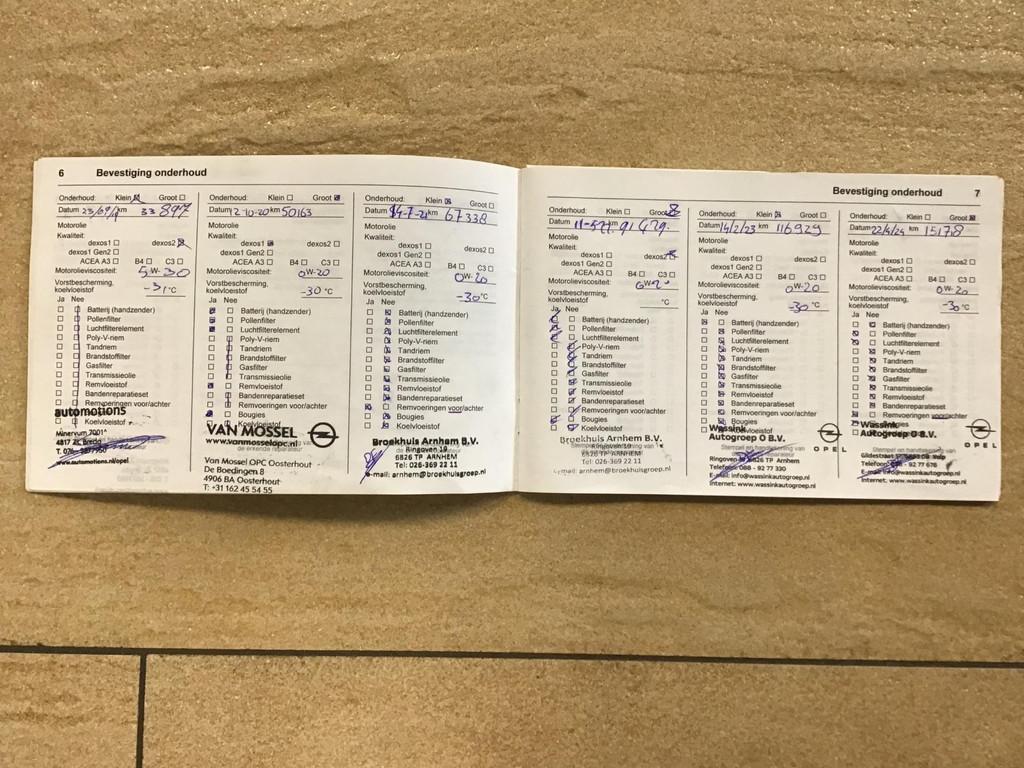 6 Bevestiging onderhoud
Onderhoud: Klein Groot
Datum 23/09/ km 33 897
Motorolie
Kwaliteit:
dexos1 dexos2
dexos1 Gen2
ACEA A3 B4 C3
Motorolieviscositeit: 5W-30
Vorstbescherming,
koelvloeistof -31°C
Ja Nee
Batterij (handzender)
Pollenfilter
Luchtfilterelement
Poly-V-riem
Tandriem
Brandstoffilter
Gasfilter
Transmissieolie
Remvloeistof
Bandenreparatieset
Remvoeringen voor/achter
Bougies
Koelvloeistof
automotions
Minervum 7001
4817 ZL Breda
www.automotions.nl/opel
Onderhoud: Klein Groot
Datum 12-10-20 km 50163
Motorolie
Kwaliteit:
dexos1 dexos2
dexos1 Gen2
ACEA A3 B4 C3
Motorolieviscositeit: 0W-20
Vorstbescherming,
koelvloeistof -30°C
Ja Nee
Batterij (handzender)
Pollenfilter
Luchtfilterelement
Poly-V-riem
Tandriem
Brandstoffilter
Gasfilter
Transmissieolie
Remvloeistof
Bandenreparatieset
Remvoeringen voor/achter
Bougies
Koelvloeistof
VAN MOSSEL
www.vanmosselopc.nl
Van Mossel OPC Oosterhout
De Boedingen 8
4906 BA Oosterhout
T: +31 162 45 54 55
Onderhoud: Klein Groot
Datum 14-7-21 km 67338
Motorolie
Kwaliteit:
dexos1 dexos2
dexos1 Gen2
ACEA A3 B4 C3
Motorolieviscositeit: 0W-20
Vorstbescherming,
koelvloeistof -30°C
Ja Nee
Batterij (handzender)
Pollenfilter
Luchtfilterelement
Poly-V-riem
Tandriem
Brandstoffilter
Gasfilter
Transmissieolie
Remvloeistof
Bandenreparatieset
Remvoeringen voor/achter
Bougies
Koelvloeistof
Broekhuis Arnhem B.V.
Ringoven 19
6826 TP ARNHEM
Tel: 026-369 22 11
e-mail: arnhem@broekhuisgroep.nl
Bevestiging onderhoud 7
Onderhoud: Klein Groot
Datum km 91429
Motorolie
Kwaliteit:
dexos1 dexos2
dexos1 Gen2
ACEA A3 B4 C3
Motorolieviscositeit:
Vorstbescherming,
koelvloeistof °C
Ja Nee
Batterij (handzender)
Pollenfilter
Luchtfilterelement
Poly-V-riem
Tandriem
Brandstoffilter
Gasfilter
Transmissieolie
Remvloeistof
Bandenreparatieset
Remvoeringen voor/achter
Bougies
Koelvloeistof
Broekhuis Arnhem B.V.
Ringoven 19
6826 TP ARNHEM
Tel: 026-369 22 11
e-mail: arnhem@broekhuisgroep.nl
Onderhoud: Klein Groot
Datum 14/2/23 km 116929
Motorolie
Kwaliteit:
dexos1 dexos2
dexos1 Gen2
ACEA A3 B4 C3
Motorolieviscositeit: 0W-20
Vorstbescherming,
koelvloeistof -30°C
Ja Nee
Batterij (handzender)
Pollenfilter
Luchtfilterelement
Poly-V-riem
Tandriem
Brandstoffilter
Gasfilter
Transmissieolie
Remvloeistof
Bandenreparatieset
Remvoeringen voor/achter
Bougies
Koelvloeistof
Wassink
Autogroep O B.V.
OPEL
Ringoven 6826 TP Arnhem
Telefoon: 088 - 92 77 330
E-mail: info@wassinkautogroep.nl
Internet: www.wassinkautogroep.nl
Onderhoud: Klein Groot
Datum km
Motorolie
Kwaliteit:
dexos1 dexos2
dexos1 Gen2
ACEA A3 B4 C3
Motorolieviscositeit: 0W-20
Vorstbescherming,
koelvloeistof -30°C
Ja Nee
Batterij (handzender)
Pollenfilter
Luchtfilterelement
Poly-V-riem
Tandriem
Brandstoffilter
Gasfilter
Transmissieolie
Remvloeistof
Bandenreparatieset
Remvoeringen voor/achter
Wassink
Autogroep O B.V.
OPEL
Gildestraat
Telefoon: - 92 77 676
E-mail: info@wassinkautogroep.nl
Internet: www.wassinkautogroep.nl